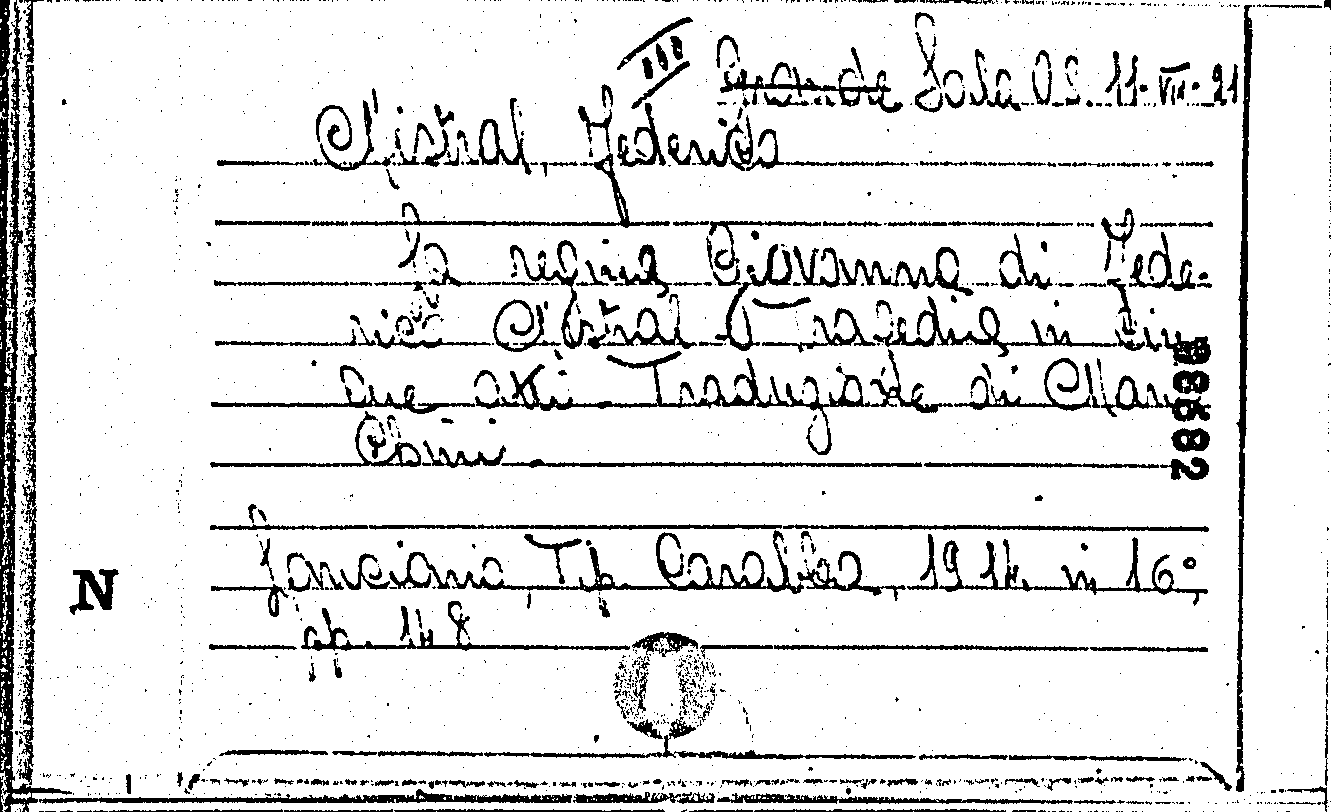 Grande Sala O.S. 11-VII-21
Mistral, Federico
La regina Giovanna di Fede-
rico Mistral - Tragedia in cin-
que atti - Traduzione di Mario
Chini.
Lanciano, Tip. Carabba, 1914. in 16°,
pp. 148
N
98682